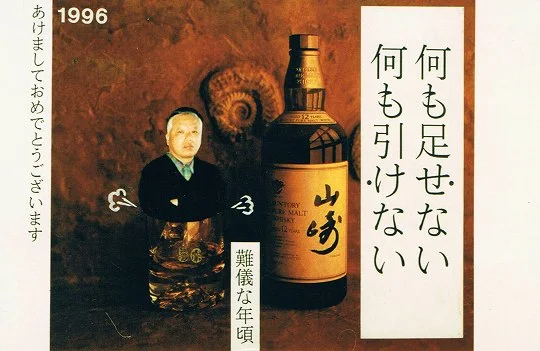 1996
何も足せない
何も引けない
あけましておめでとうございます
難儀な年頃
12 YEARS
SUNTORY
PURE MALT
WHISKY
12 YEARS
山崎